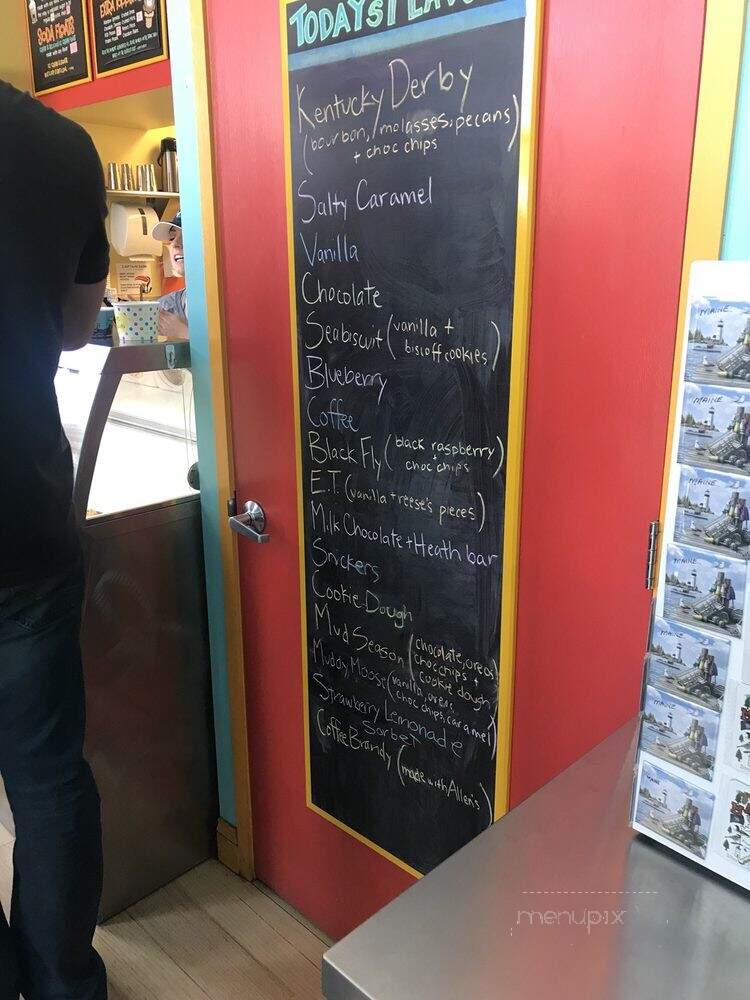 TODAYS FLAV
Kentucky Derby
(bourbon, molasses, pecans)
+ choc chips
Salty Caramel
Vanilla
Chocolate
Seabiscuit (vanilla +
biscoff cookies)
Blueberry
Coffee
Black Fly (black raspberry
+ choc chips)
E.T. (vanilla + reese's pieces)
Milk Chocolate + Heath bar
Snickers
Cookie Dough
Mud Season (chocolate, oreos
choc chips +
cookie dough)
Muddy Moose (vanilla, oreos
choc chips, caramel)
Strawberry Lemonade
Sorbet
Coffee Brandy (made with Allen's)
SODA FLOATS
EXTRA
MAINE
MAINE
MAINE
MAINE
MAINE
MAINE
MAINE
menupix